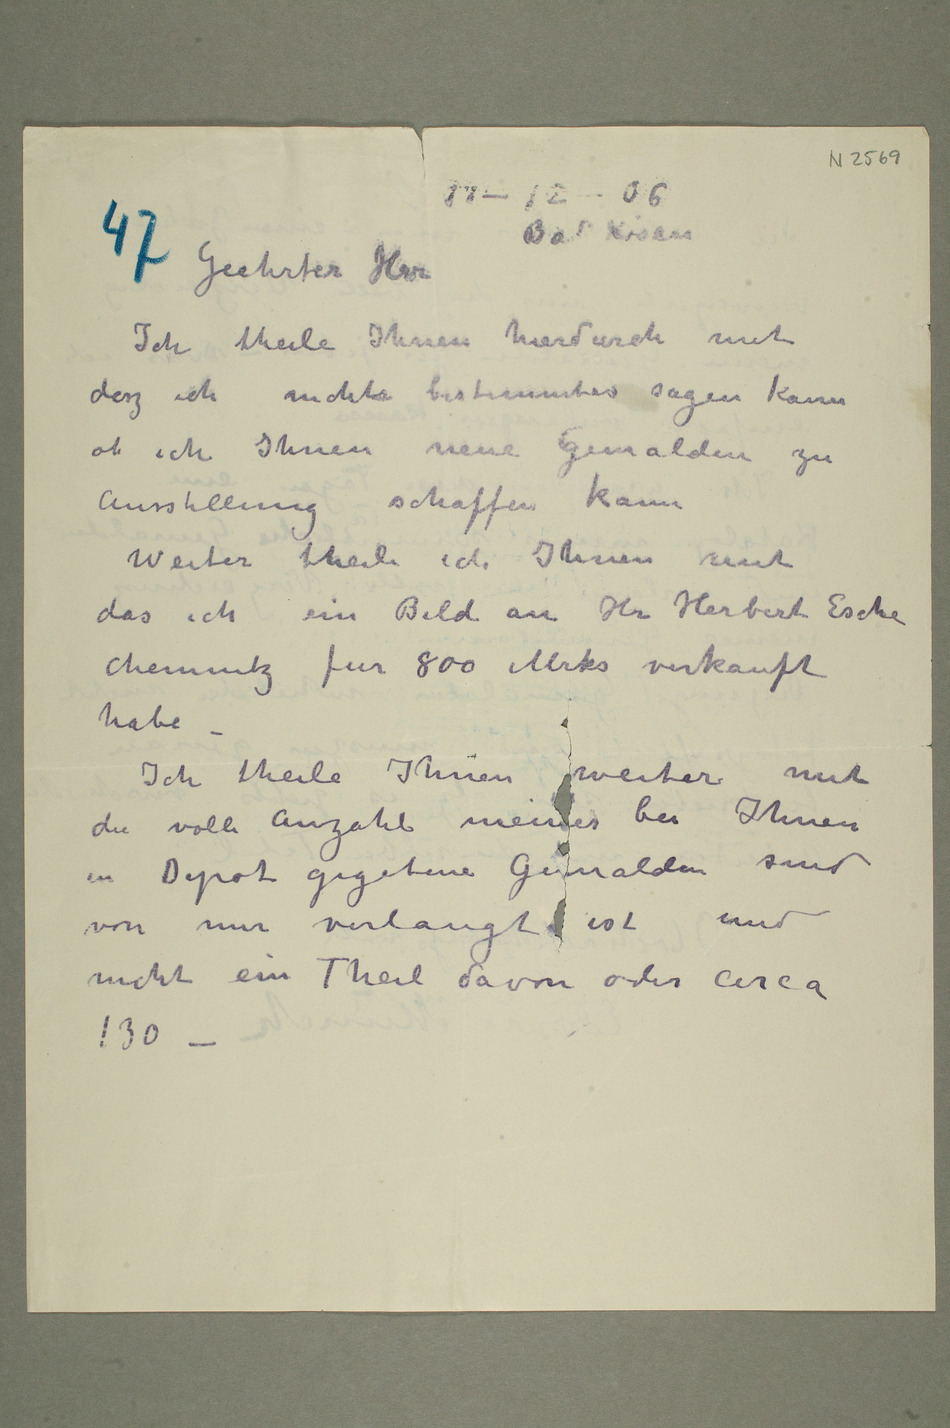 N 2569
47
– 12 – 06
Bad Kösen
Geehrter Herr
Ich theile Ihnen hierdurch mit
dasz ich nichts bestimmtes sagen kann
ob ich Ihnen neue Gemälden zu
Ausstellung schaffen kann
Weiter theile ich Ihnen mit
das ich ein Bild an Hr Herbert Esche
Chemnitz für 800 Mrks verkauft
habe –
Ich theile Ihnen weiter mit
die volle Anzahl meines bei Ihnen
in Depot gegebene Gemälden sind
von mir verlangt ist und
nicht ein Theil davon oder circa
130 –